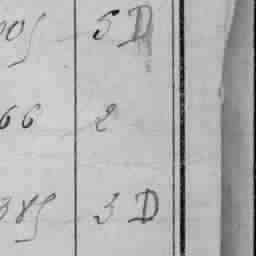 005 5 D
66 2
385 3 D